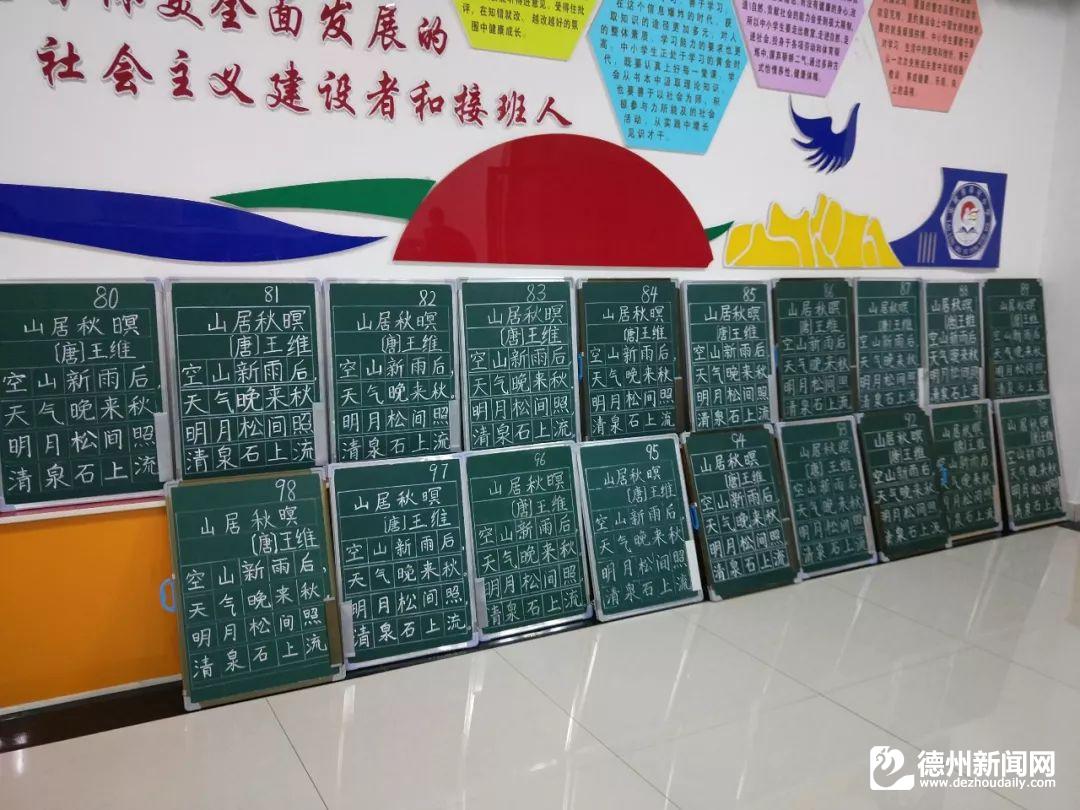 美全面发展的
社会主义建设者和接班人
评，在知错就改、越改越好的氛
围中健康成长。
在这个信息爆炸的时代，获
取知识的途径更加多元，对人
的整体素质、学习能力的要求也更
高。中小学生正处于学习的黄金时
代，既要认真上好每一堂课，学
会从书本中汲取理论知识，
也要善于以社会为师，积
极参与力所能及的社会
活动，从实践中增长
见识才干。
80
山居秋暝
〔唐〕王维
空山新雨后，
天气晚来秋
明月松间照
清泉石上流
81
山居秋暝
〔唐〕王维
空山新雨后，
天气晚来秋
明月松间照
清泉石上流
82
山居秋暝
〔唐〕王维
空山新雨后，
天气晚来秋
明月松间照
清泉石上流
83
山居秋暝
〔唐〕王维
空山新雨后，
天气晚来秋
明月松间照，
清泉石上流
84
山居秋暝
〔唐〕王维
空山新雨后，
天气晚来秋
明月松间照
清泉石上流
85
山居秋暝
〔唐〕王维
空山新雨后
天气晚来秋
明月松间照
清泉石上流
86
山居秋暝
〔唐〕王维
空山新雨后
天气晚来秋
明月松间照
清泉石上流
87
山居秋暝
〔唐〕王维
空山新雨后
天气晚来秋
明月松间照
清泉石上流
88
山居秋暝
〔唐〕王维
空山新雨后
天气晚来秋
明月松间照
清泉石上流
89
山居秋暝
〔唐〕王维
空山新雨后
天气晚来秋
明月松间照
清泉石上流
98
山居秋暝
〔唐〕王维
空山新雨后，
天气晚来秋
明月松间照
清泉石上流
97
山居秋暝
〔唐〕王维
空山新雨后
天气晚来秋
明月松间照
清泉石上流
96
山居秋暝
〔唐〕王维
空山新雨后，
天气晚来秋
明月松间照
清泉石上流
95
山居秋暝
〔唐〕王维
空山新雨后，
天气晚来秋
明月松间照
清泉石上流
94
山居秋暝
〔唐〕王维
空山新雨后，
天气晚来秋
明月松间照
清泉石上流
93
山居秋暝
〔唐〕王维
空山新雨后
天气晚来秋
明月松间照
清泉石上流
92
山居秋暝
〔唐〕王维
空山新雨后
天气晚来秋
明月松间照
清泉石上流
山居秋暝
〔唐〕王维
空山新雨后
天气晚来秋
明月松间照
清泉石上流
山居秋暝
〔唐〕王维
空山新雨后
天气晚来秋
明月松间照
清泉石上流
德州新闻网
www.dezhoudaily.com